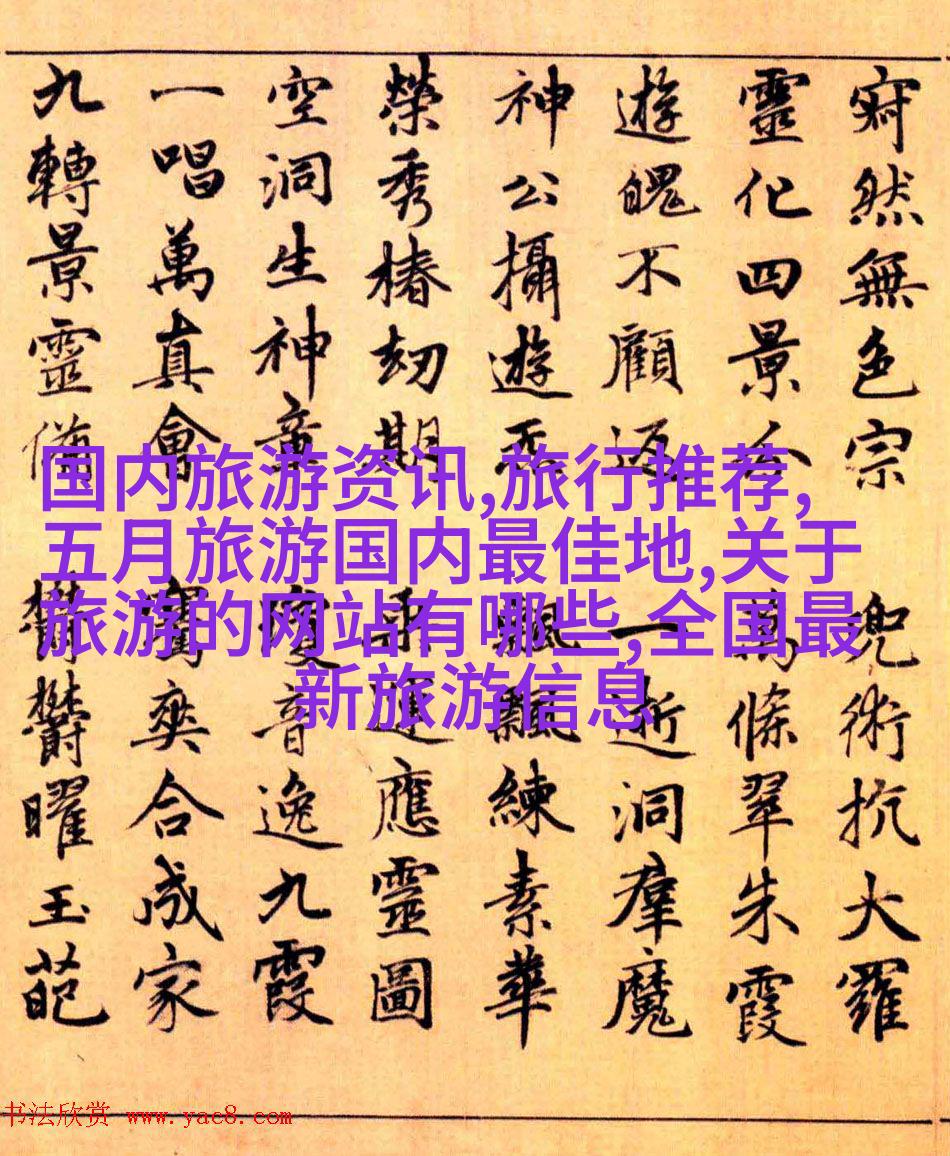 寂然無色宗 兜術抗大羅
靈化四景分 萬條翠朱霞
遊魄不顧返 一逝洞羣魔
神公攝遊炁 飄飄練素華
榮秀椿劫期 乘運應靈圖
空洞生神章 瓊音逸九霞
一唱萬真會 騫爽合成家
九轉景靈備 鬱鬱曜玉葩
国内旅游资讯,旅行推荐,
五月旅游国内最佳地,关于
旅游的网站有哪些,全国最
新旅游信息
书法欣赏 www.yac8.com